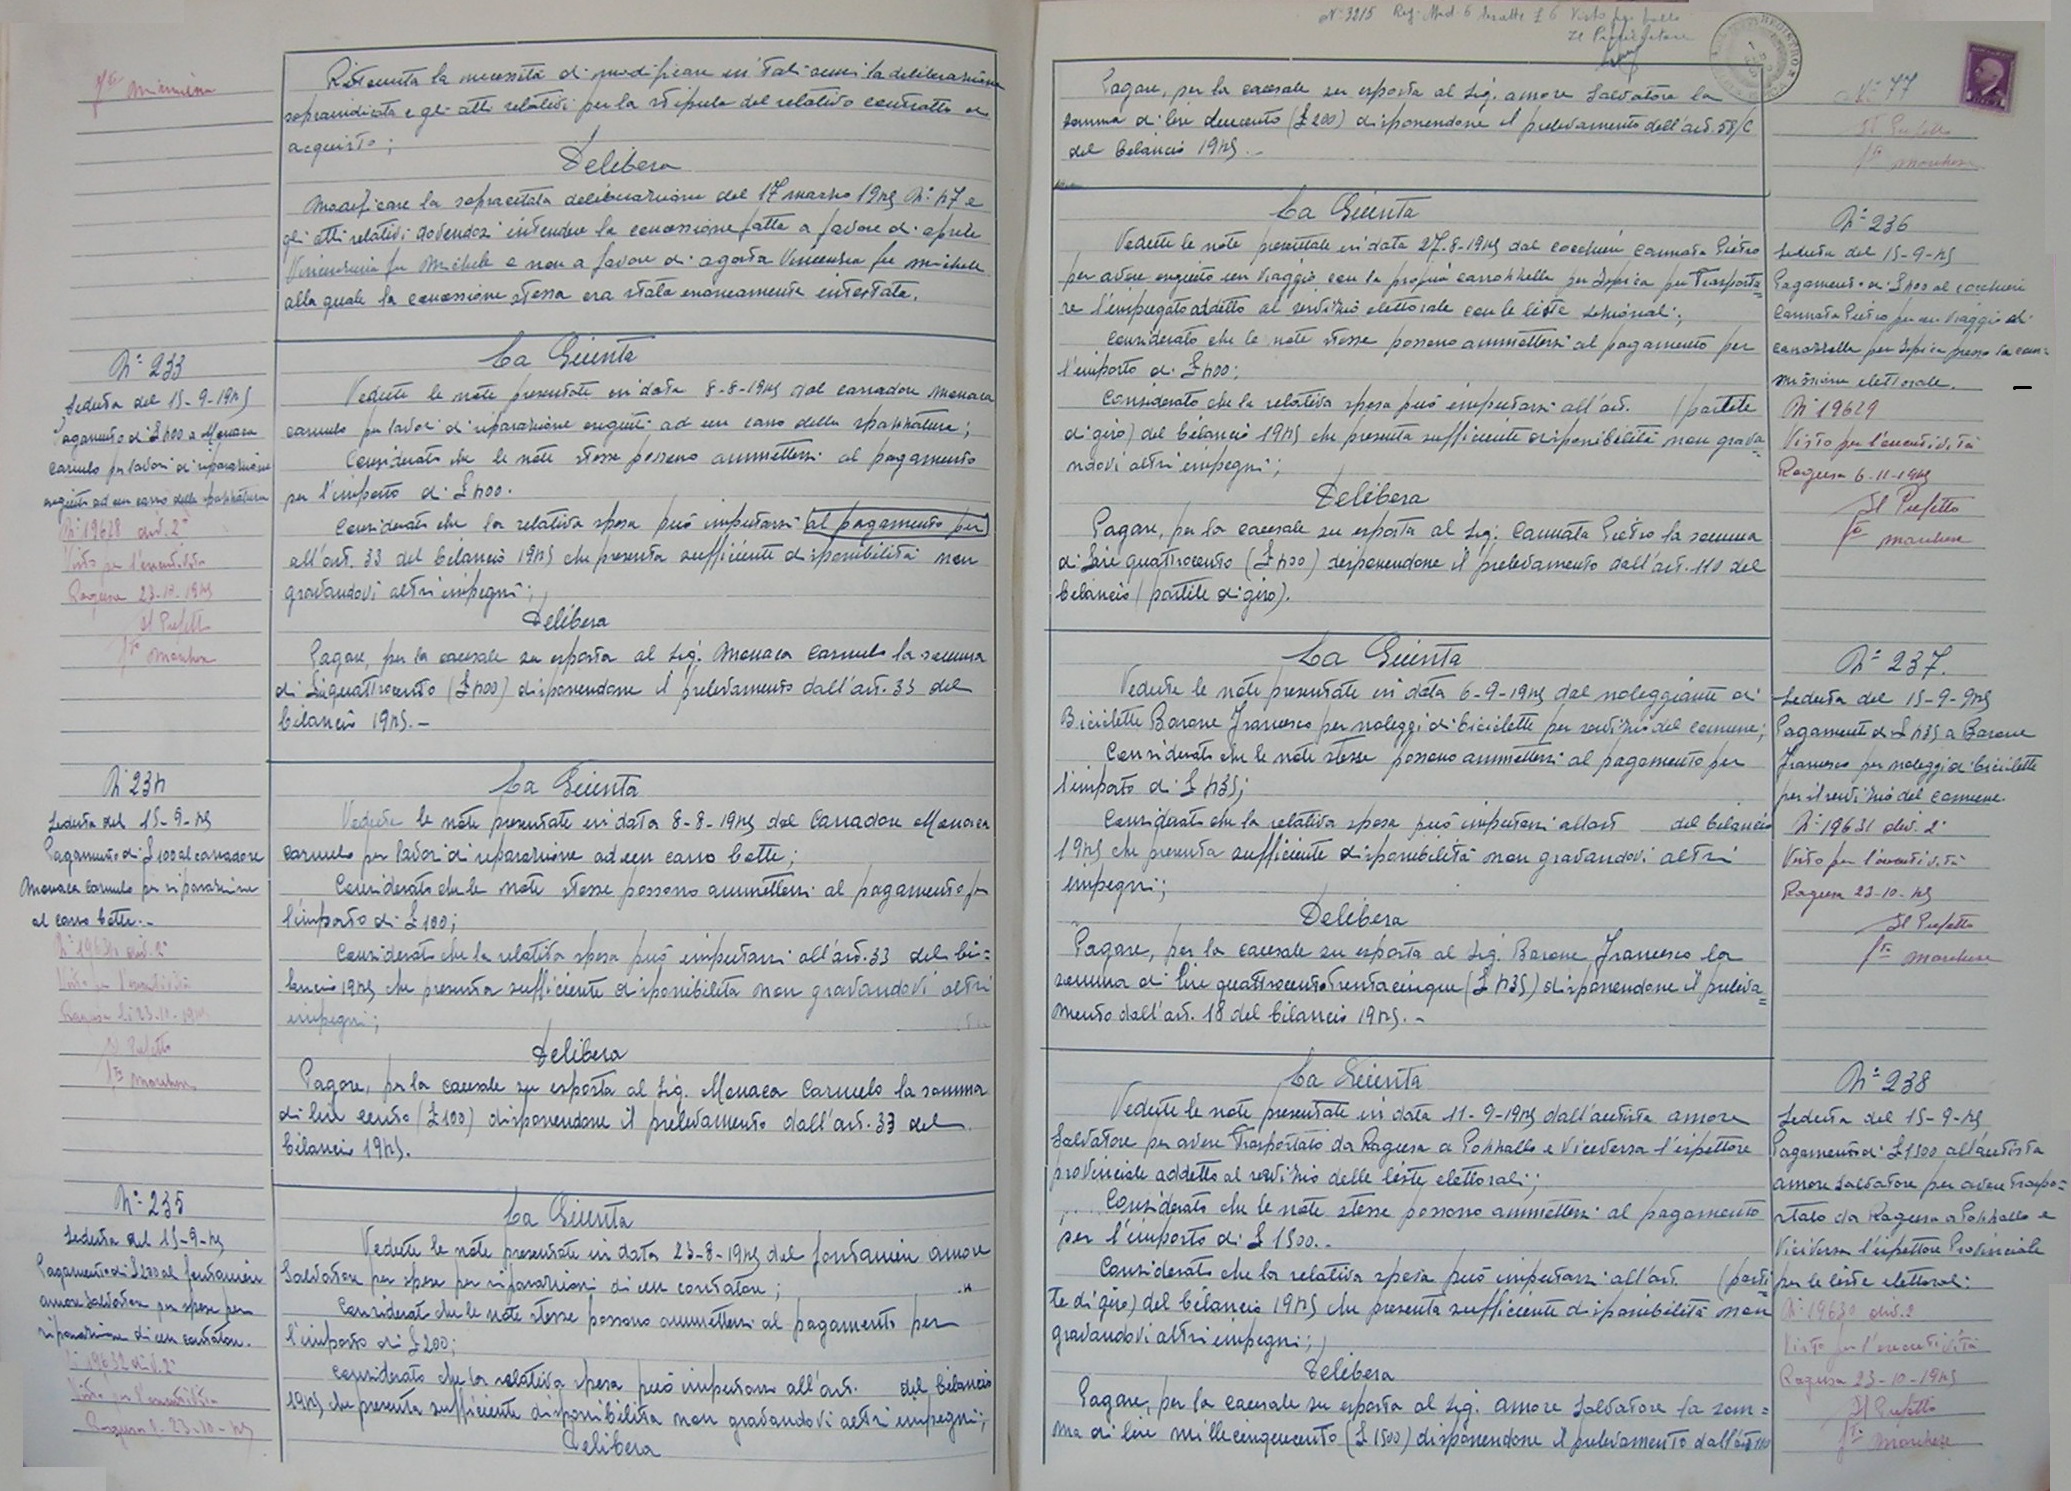 fto Miniera
Ritenuta la necessità di modificare in tali sensi la deliberazione
sopraindicata e gli atti relativi per la stipula del relativo contratto di
acquisto;
Delibera
Modificare la sopracitata deliberazione del 17 marzo 1945 N° 47 e
gli atti relativi dovendosi intendere la concessione fatta a favore di Aprile
Vincenzina fu Michele e non a favore di Agosta Vincenza fu Michele
alla quale la concessione stessa era stata erroneamente intestata.
N° 233
Seduta del 15-9-1945
Pagamento di £ 400 a Monaca
Carmelo per lavori di riparazione
eseguiti ad un carro della spazzatura
N° 19628 div. 2ª
Visto per l'esecutività
Ragusa 23-10-1945
Il Prefetto
fto Marchese
La Giunta
Vedute le note presentate in data 8-8-1945 dal carradore Monaca
Carmelo per lavori di riparazione eseguiti ad un carro della spazzatura;
Considerato che le note stesse possono ammettersi al pagamento
per l'importo di £ 400.
Considerato che la relativa spesa può imputarsi al pagamento per
all'art. 33 del bilancio 1945 che presenta sufficiente disponibilità non
gravandovi altri impegni;
Delibera
Pagare, per la causale su esposta al Sig. Monaca Carmelo la somma
di Lire quattrocento (£ 400) disponendone il prelevamento dall'art. 33 del
bilancio 1945.-
N° 234
Seduta del 15-9-45
Pagamento di £ 100 al carradore
Monaca Carmelo per riparazione
al carro botte.-
N° 19634 div. 2ª
Visto per l'esecutività
Ragusa li 23-10-1945
Il Prefetto
fto Marchese
La Giunta
Vedute le note presentate in data 8-8-1945 dal Carradore Monaca
Carmelo per lavori di riparazione ad un carro botte;
Considerato che le note stesse possono ammettersi al pagamento per
l'importo di £ 100;
Considerato che la relativa spesa può imputarsi all'art. 33 del bi=
lancio 1945 che presenta sufficiente disponibilità non gravandovi altri
impegni;
Delibera
Pagare, per la causale su esposta al Sig. Monaca Carmelo la somma
di lire cento (£ 100) disponendone il prelevamento dall'art. 33 del
bilancio 1945.
N° 235
Seduta del 15-9-45
Pagamento di £ 200 al fontaniere
Amore Salvatore per spese per
riparazione di un contatore.
N° 19632 div. 2ª
Visto per l'esecutività
Ragusa li 23-10-45
La Giunta
Vedute le note presentate in data 23-8-1945 del fontaniere Amore
Salvatore per spese per riparazioni di un contatore;
Considerato che le note stesse possono ammettersi al pagamento per
l'importo di £ 200;
Considerato che la relativa spesa può imputarsi all'art. del bilancio
1945 che presenta sufficiente disponibilità non gravandovi altri impegni;
Delibera
N° 3215 Reg. Mod. 6 £ 6 Visto per bollo
Il Procuratore
N° 77
Pagare, per la causale su esposta al Sig. Amore Salvatore la
somma di lire duecento (£ 200) disponendone il prelevamento dell'art. 58/C
del bilancio 1945.-
Il Prefetto
fto Marchese
La Giunta
Vedute le note presentate in data 27-8-1945 dal cocchiere Cannata Pietro
per avere eseguito un viaggio con la propria carrozzella per Ispica per trasporta=
re l'impiegato addetto al servizio elettorale con le liste sezionali;
Considerato che le note stesse possono ammettersi al pagamento per
l'importo di £ 400;
Considerato che la relativa spesa può imputarsi all'art. (partite
di giro) del bilancio 1945 che presenta sufficiente disponibilità non grava=
ndovi altri impegni;
Delibera
Pagare, per la causale su esposta al Sig. Cannata Pietro la somma
di Lire quattrocento (£ 400) disponendone il prelevamento dall'art. 110 del
bilancio (partite di giro).
N° 236
Seduta del 15-9-45
Pagamento di £ 400 al cocchiere
Cannata Pietro per un viaggio di
carrozzella per Ispica presso la com=
missione elettorale.
N° 19629
Visto per l'esecutività
Ragusa 6-11-1945
Il Prefetto
fto Marchese
La Giunta
Vedute le note presentate in data 6-9-1945 dal noleggiante di
Biciclette Barone Francesco per noleggi di biciclette per servizio del comune;
Considerato che le note stesse possono ammettersi al pagamento per
l'importo di £ 435;
Considerato che la relativa spesa può imputarsi all'art del bilancio
1945 che presenta sufficiente disponibilità non gravandovi altri
impegni;
Delibera
Pagare, per la causale su esposta al Sig. Barone Francesco la
somma di lire quattrocentotrentacinque (£ 435) disponendone il preleva=
mento dall'art. 18 del bilancio 1945.-
N° 237.
Seduta del 15-9-945
Pagamento di £ 435 a Barone
Francesco per noleggi di biciclette
per il servizio del comune.
N° 19631 div. 2ª
Visto per l'esecutività
Ragusa 23-10-45
Il Prefetto
fto Marchese
La Giunta
Vedute le note presentate in data 11-9-1945 dall'autista Amore
Salvatore per avere trasportato da Ragusa a Pozzallo e viceversa l'ispettore
provinciale addetto al servizio delle liste elettorali;
Considerato che le note stesse possono ammettersi al pagamento
per l'importo di £ 1500.-
Considerato che la relativa spesa può imputarsi all'art. (parti
te di giro) del bilancio 1945 che presenta sufficiente disponibilità non
gravandovi altri impegni;
Delibera
Pagare, per la causale su esposta al Sig. Amore Salvatore la som=
ma di lire millecinquecento (£ 1500) disponendone il prelevamento dall'art 110
N° 238
Seduta del 15-9-45
Pagamento di £ 1500 all'autista
Amore Salvatore per avere traspo=
rtato da Ragusa a Pozzallo e
viceversa l'ispettore Provinciale
per le liste elettorali
N° 19630 div. 2
Visto per l'esecutività
Ragusa 23-10-1945
Il Prefetto
fto Marchese